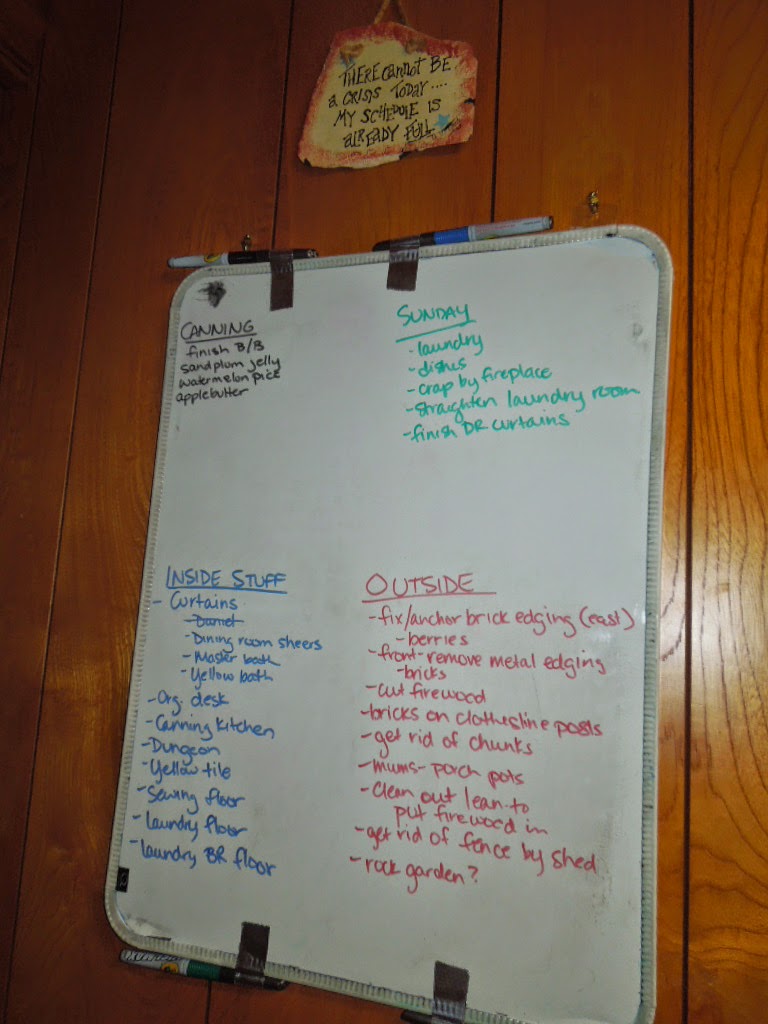 THERE CANNOT BE
A CRISIS TODAY ....
MY SCHEDULE IS
ALREADY FULL
CANNING
finish B/B
sandplum jelly
watermelon pick
applebutter
SUNDAY
- laundry
- dishes
- crap by fireplace
- straighten laundry room
- finish DR curtains
INSIDE STUFF
- Curtains
- Daniel
- Dining room sheers
- Master bath
- Yellow bath
- Org. desk
- Canning kitchen
- Dungeon
- Yellow tile
- Sewing floor
- laundry floor
- laundry BR floor
OUTSIDE
- fix/anchor brick edging (east)
- berries
- front - remove metal edging
- bricks
- cut firewood
- bricks on clothesline posts
- get rid of chunks
- mums - porch pots
- Clean out lean-to
put firewood in
- get rid of fence by shed
- rock garden?